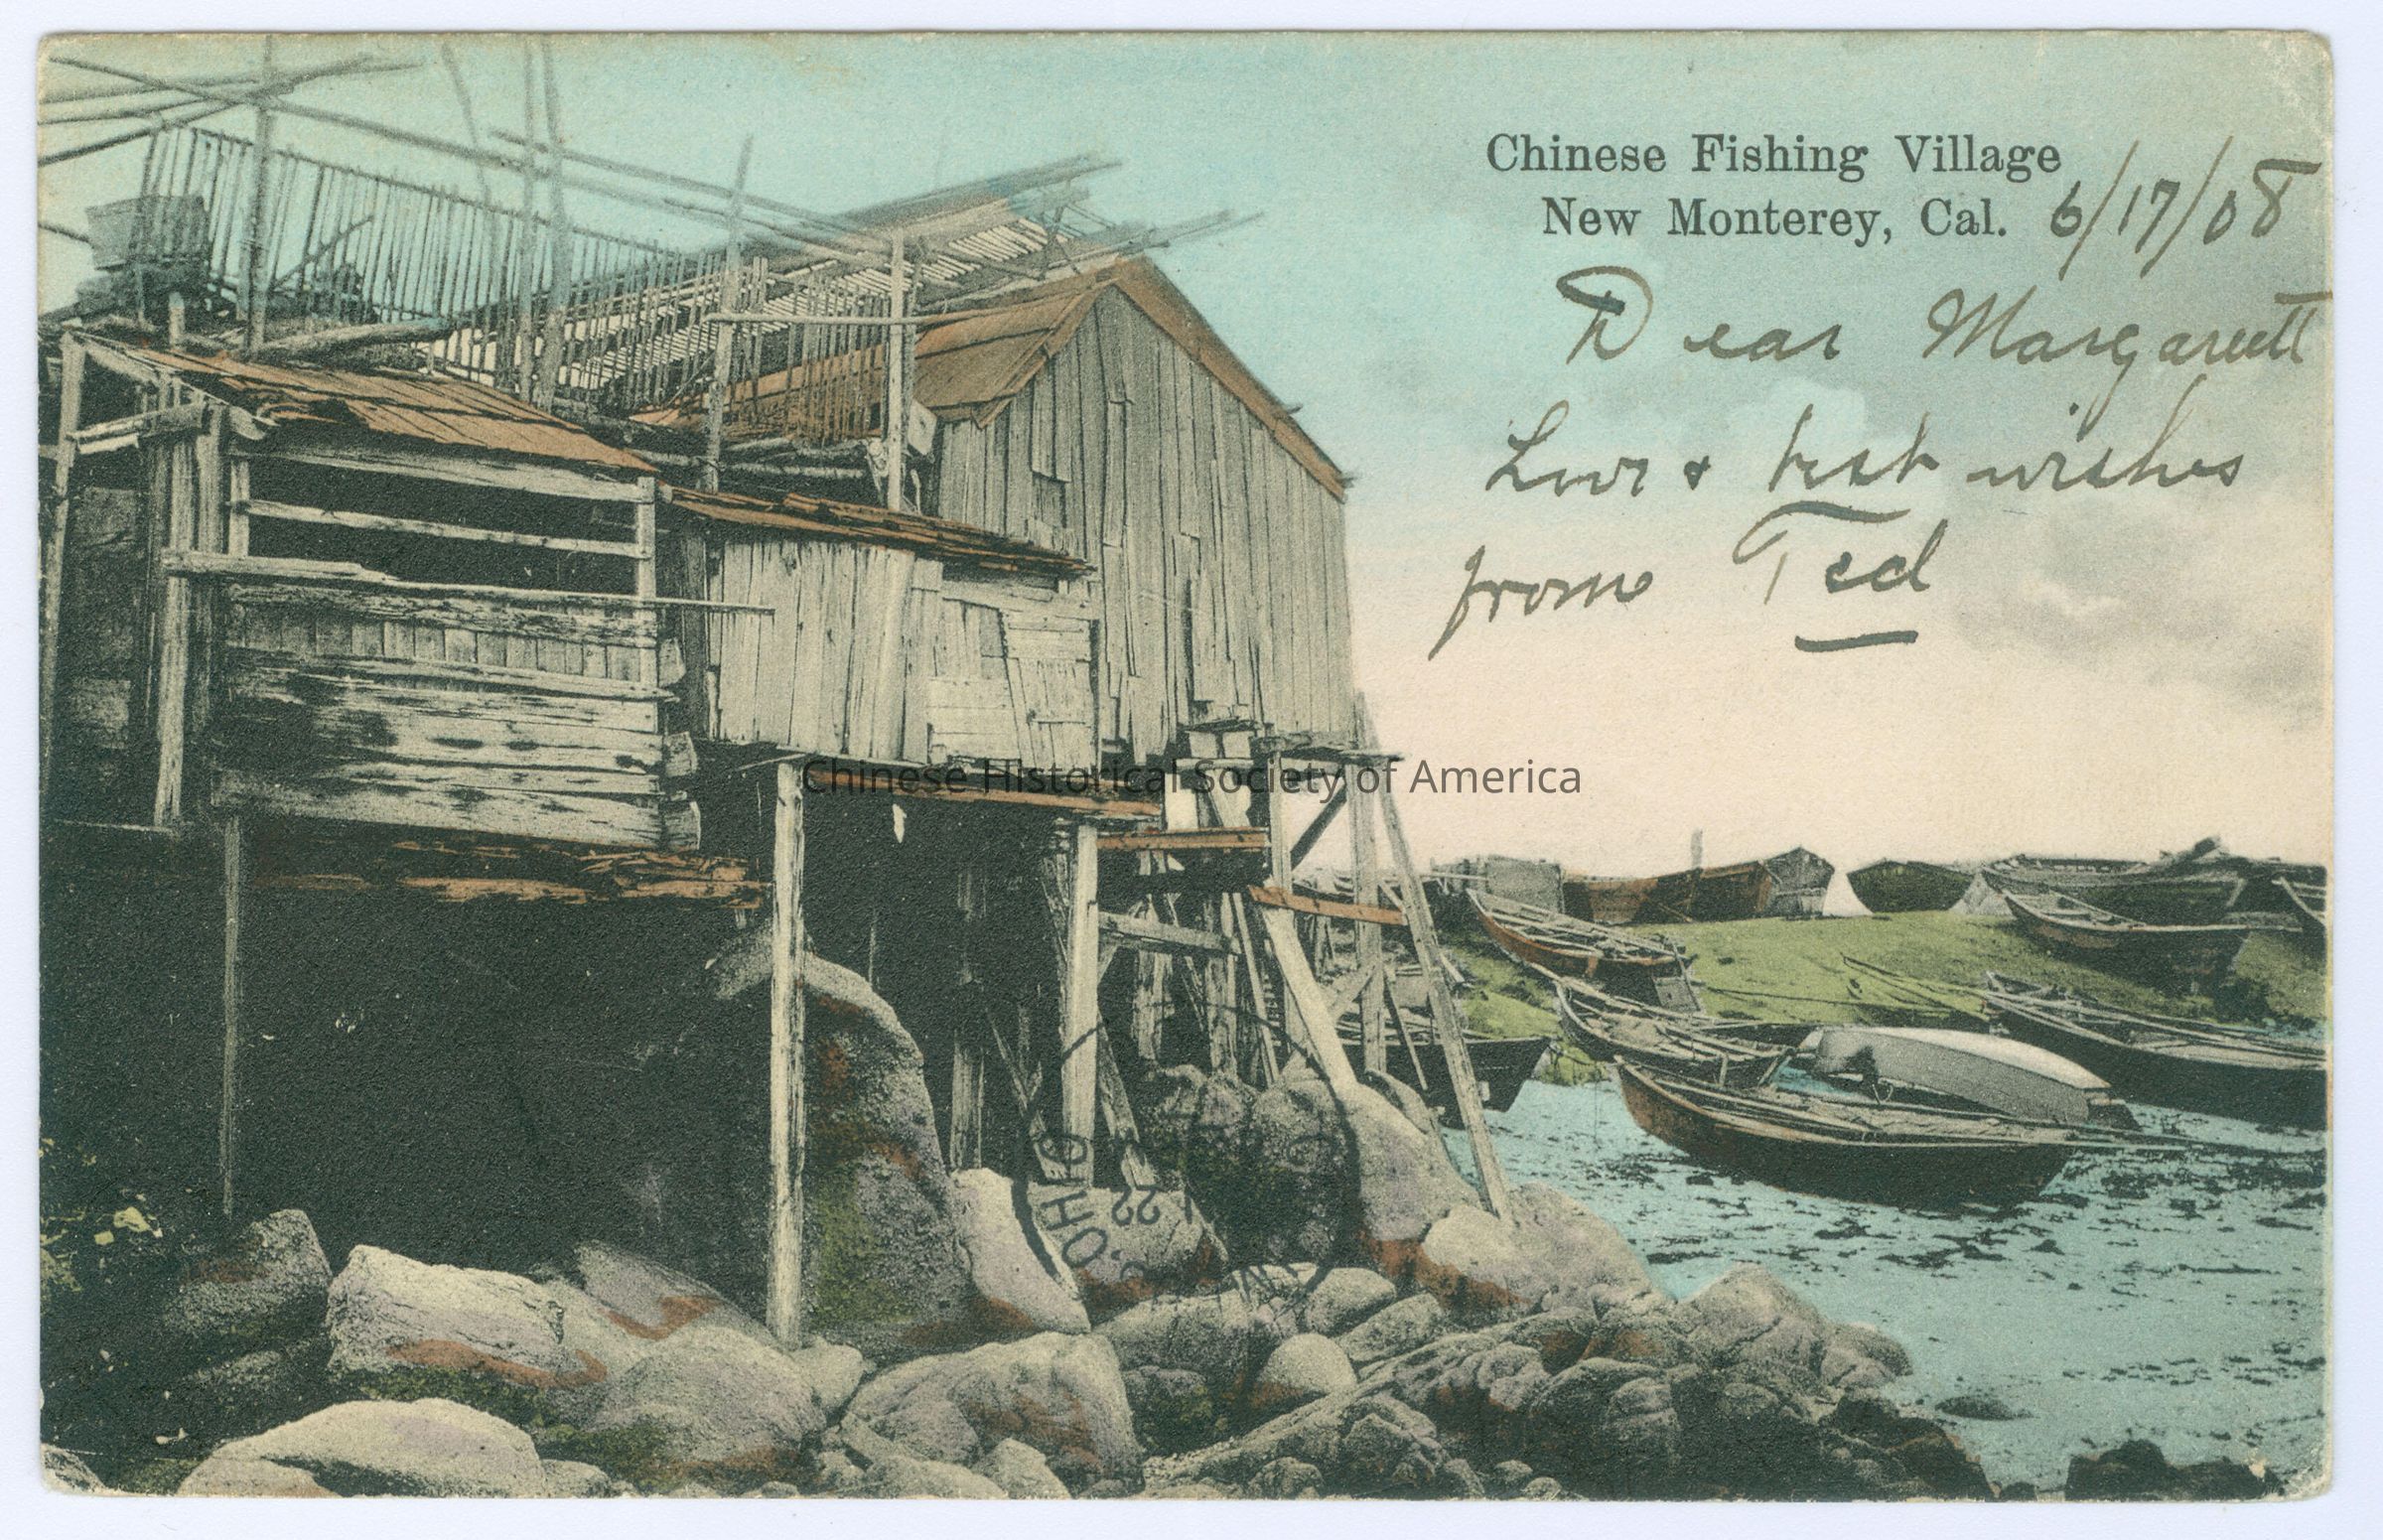 Chinese Fishing Village
New Monterey, Cal. 6/17/08
Dear Margarett
Love & best wishes
from Ted
Chinese Historical Society of America
OHIO
22